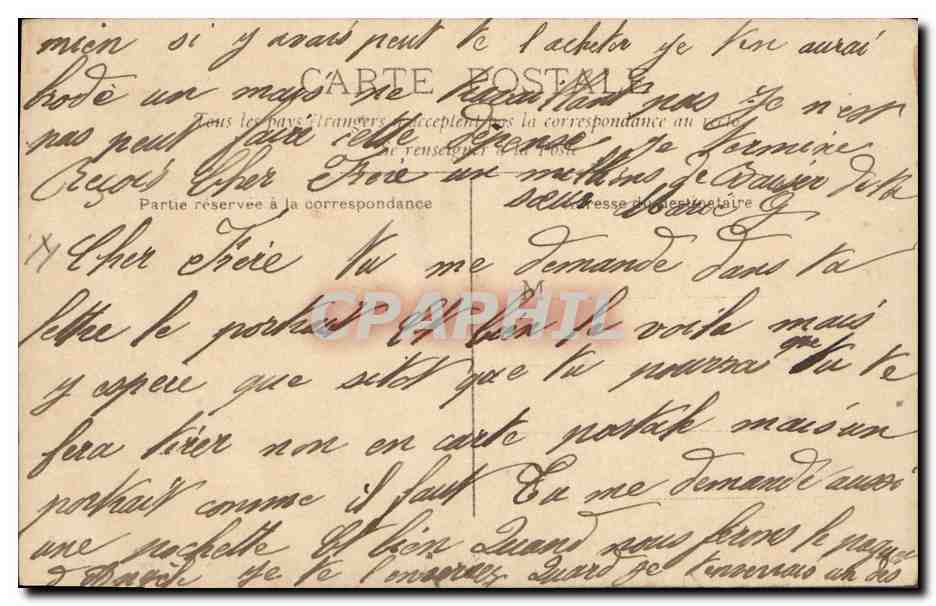 mien si y avais peut te l acheter je t'en aurai
CARTE POSTALE
brodé un mais ne travaillant pas Je n'est
Tous les pays étrangers n'acceptent pas la correspondance au recto
pas peut faire cette dépense je termine
Se renseigner à la Poste
Reçois Cher Frère un millions de Baisier de ta
Partie réservée à la correspondance
Adresse du destinataire
sœur Marie G
Cher Frére tu me demande dans ta
M
lettre le portrait Et bien le voila mais
CPAPHIL
y espere que sitot que tu pourra que tu te
fera tirer non en carte postale mais un
portrait comme il faut Tu me demande aussi
une pochette Et bien Quand nous ferons le paquet
je te l'enverrez Quand je t'envervais un des